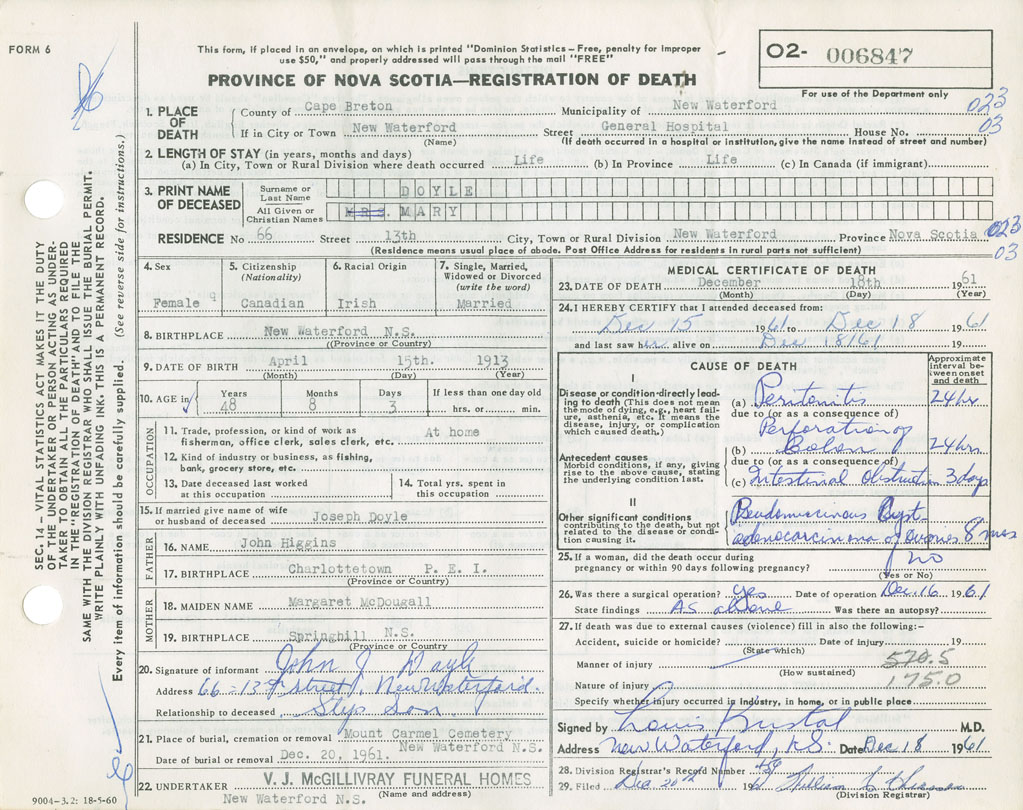 FORM 6
This form, if placed in an envelope, on which is printed "Dominion Statistics – Free, penalty for improper
use $50," and properly addressed will pass through the mail "FREE"
PROVINCE OF NOVA SCOTIA—REGISTRATION OF DEATH
O2- 006847
For use of the Department only
SEC. 14 – VITAL STATISTICS ACT MAKES IT THE DUTY
OF THE UNDERTAKER OR PERSON ACTING AS UNDER-
TAKER TO OBTAIN ALL THE PARTICULARS REQUIRED
IN THE "REGISTRATION OF DEATH" AND TO FILE THE
SAME WITH THE DIVISION REGISTRAR WHO SHALL ISSUE THE BURIAL PERMIT.
WRITE PLAINLY WITH UNFADING INK. THIS IS A PERMANENT RECORD.
Every item of information should be carefully supplied. (See reverse side for instructions.)
9004-3.2: 18-5-60
1. PLACE OF DEATH
County of Cape Breton Municipality of New Waterford 023
If in City or Town New Waterford Street General Hospital House No. 03
(Name) (If death occurred in a hospital or institution, give the name instead of street and number)
2. LENGTH OF STAY (in years, months and days)
(a) In City, Town or Rural Division where death occurred Life (b) In Province Life (c) In Canada (if immigrant)
3. PRINT NAME OF DECEASED
Surname or Last Name DOYLE
All Given or Christian Names MRS. MARY
RESIDENCE No 66 Street 13th City, Town or Rural Division New Waterford Province Nova Scotia 023
(Residence means usual place of abode. Post Office Address for residents in rural part not sufficient) 03
4. Sex Female 9
5. Citizenship (Nationality) Canadian
6. Racial Origin Irish
7. Single, Married, Widowed or Divorced (write the word) Married
8. BIRTHPLACE New Waterford N.S.
(Province or Country)
9. DATE OF BIRTH April 15th. 1913
(Month) (Day) (Year)
10. AGE in Years 48 Months 8 Days 3 If less than one day old hrs. or min.
OCCUPATION
11. Trade, profession, or kind of work as fisherman, office clerk, sales clerk, etc. At home
12. Kind of industry or business, as fishing, bank, grocery store, etc.
13. Date deceased last worked at this occupation
14. Total yrs. spent in this occupation
15. If married give name of wife or husband of deceased Joseph Doyle
FATHER
16. NAME John Higgins
17. BIRTHPLACE Charlottetown P. E. I.
(Province or Country)
MOTHER
18. MAIDEN NAME Margaret McDougall
19. BIRTHPLACE Springhill N.S.
(Province or Country)
20. Signature of informant John J Doyle
Address 66 – 13th Street, New Waterford.
Relationship to deceased Step Son
21. Place of burial, cremation or removal Mount Carmel Cemetery
New Waterford N.S.
Date of burial or removal Dec. 20, 1961.
22. UNDERTAKER V. J. McGILLIVRAY FUNERAL HOMES
New Waterford N.S. (Name and address)
MEDICAL CERTIFICATE OF DEATH
23. DATE OF DEATH December 18th 1961
(Month) (Day) (Year)
24. I HEREBY CERTIFY that I attended deceased from:
Dec 15 1961 to Dec 18 1961
and last saw her alive on Dec 18/61 19
CAUSE OF DEATH
Approximate interval between onset and death
I
Disease or condition directly leading to death (This does not mean the mode of dying, e.g., heart failure, asthenia, etc. It means the disease, injury, or complication which caused death.)
(a) Peritonitis 24 hr
due to (or as a consequence of)
Perforation of
(b) Colon 24 hrs
Antecedent causes
Morbid conditions, if any, giving rise to the above cause, stating the underlying condition last.
due to (or as a consequence of)
(c) Intestinal Obstruction 3 days
II
Other significant conditions
contributing to the death, but not related to the disease or condition causing it.
Pseudomucinous Cyst-
adenocarcinoma of ovaries 8 mos
25. If a woman, did the death occur during
pregnancy or within 90 days following pregnancy? No
(Yes or No)
26. Was there a surgical operation? yes Date of operation Dec 16 1961
State findings As above Was there an autopsy?
27. If death was due to external causes (violence) fill in also the following:–
Accident, suicide or homicide? Date of injury 19
(State which)
Manner of injury 570.5
(How sustained)
Nature of injury 175.0
Specify whether injury occurred in industry, in home, or in public place
Signed by Louis Kristal M.D.
Address New Waterford, N.S. Date Dec 18 1961
28. Division Registrar's Record Number
29. Filed Dec 20th 19 William
(Division Registrar)